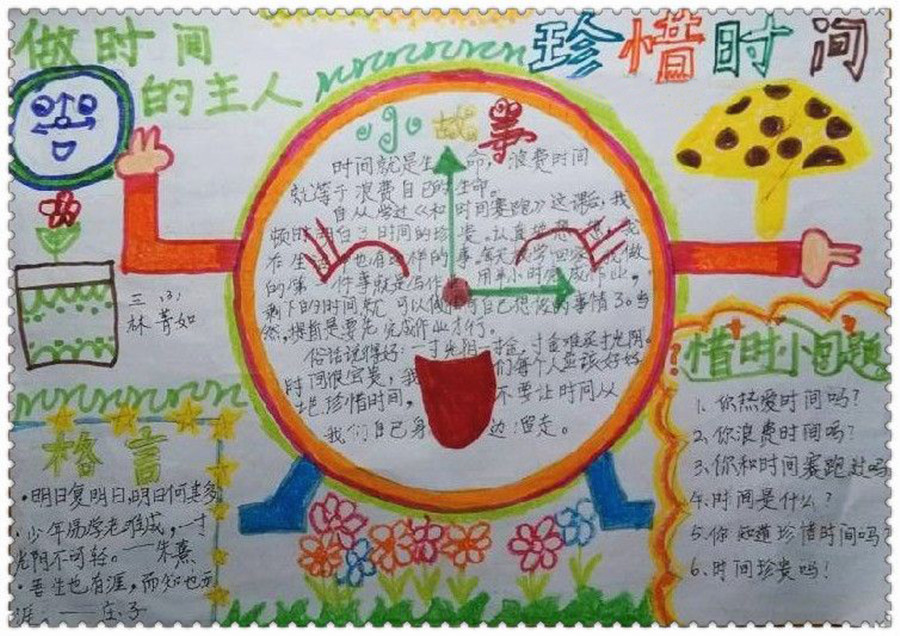 做时间
的主人
珍惜时间
小故事
时间就是生命，浪费时间
就等于浪费自己的生命。
自从学过《和时间赛跑》这课后，我
顿时明白了时间的珍贵。认真地想一想，我
在生活中也有这样的事。每天放学回家，我做
的第一件事就是写作业，用半小时完成作业，
剩下的时间就可以做自己想做的事情了。当
然，提前是要先完成作业才行。
俗话说得好：一寸光阴一寸金，寸金难买寸光阴。
时间很宝贵，我们每个人应该好好
地珍惜时间，不要让时间从
我们自己身边溜走。
三（3）
林菁如
格言
·明日复明日，明日何其多
·少年易学老难成，一寸
光阴不可轻。——朱熹
·吾生也有涯，而知也无
涯。——庄子
惜时小问题
1、你热爱时间吗？
2、你浪费时间吗？
3、你和时间赛跑过吗
4、时间是什么？
5、你知道珍惜时间吗？
6、时间珍贵吗！